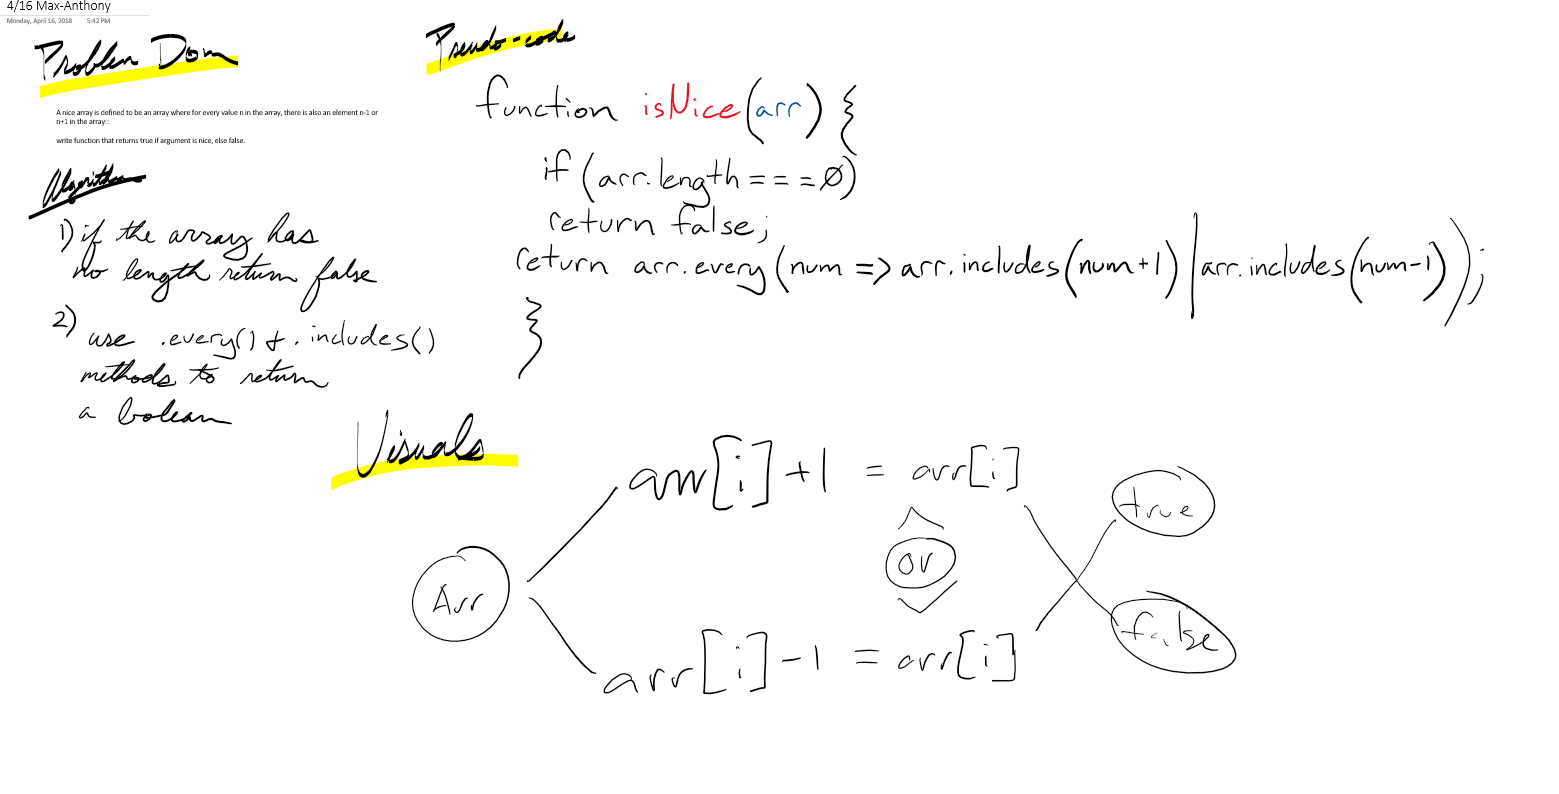 4/16 Max-Anthony
Monday, April 16, 2018 5:42 PM
Problem Dom
A nice array is defined to be an array where for every value n in the array, there is also an element n-1 or
n+1 in the array::
write function that returns true if argument is nice, else false.
Algorithm
1) if the array has
no length return false
2) use .every() & .includes()
methods to return
a bolean
Pseudo-code
function isNice(arr) {
if (arr.length === 0)
return false;
return arr.every(num => arr.includes(num+1) | arr.includes(num-1));
}
Visuals
arr[i] +1 = arr[i]
true
or
Arr
false
arr[i] -1 = arr[i]